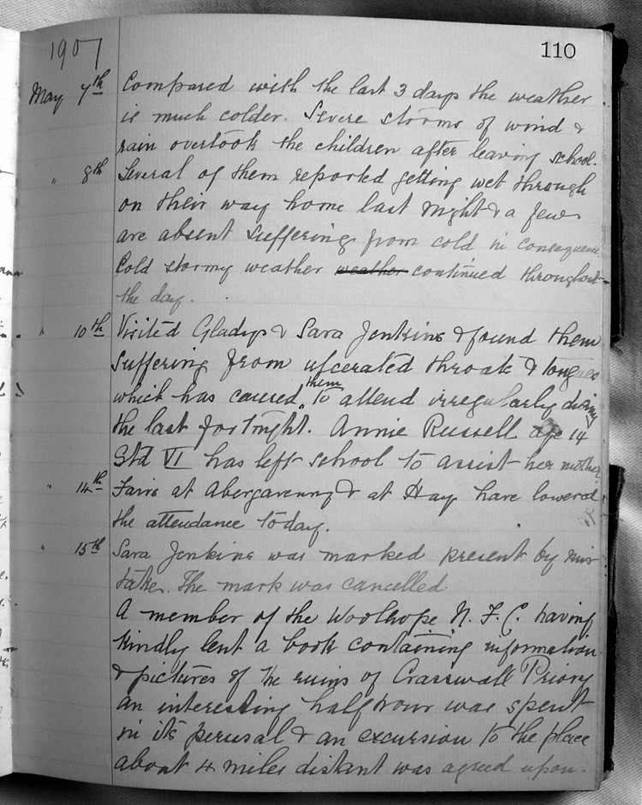 1907
110
May 7th Compared with the last 3 days the weather
is much colder. Severe storms of wind &
rain overtook the children after leaving school.
" 8th Several of them reported getting wet through
on their way home last night & a few
are absent suffering from cold in consequence
Cold stormy weather weather continued throughout
the day.
" 10th Visited Gladys & Sara Jenkins & found them
suffering from ulcerated throats & tongues
which has caused them to attend irregularly during
the last fortnight. Annie Russell age 14
Std VI has left school to assist her mother
" 14th Fairs at Abergavenny & at Hay have lowered
the attendance today.
" 15th Sara Jenkins was marked present by mis
take. The mark was cancelled
A member of the Woolhope N. F. C. having
kindly lent a book containing information
& pictures of the ruins of Crasswall Priory
an interesting half hour was spent
in its perusal & an excursion to the place
about 4 miles distant was agreed upon.